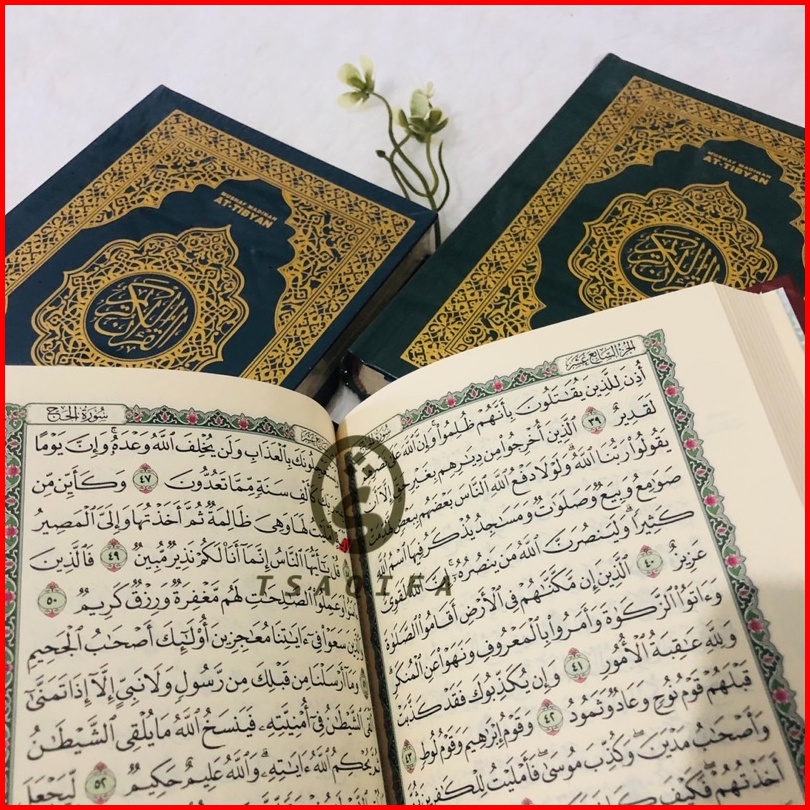 MUSHAF MADINAH
AT-TIBYAN
القرآن الكريم
MUSHAF MADINAH
AT-TIBYAN
القرآن الكريم
الجزء السابع عشر
أُذِنَ لِلَّذِينَ يُقَٰتَلُونَ بِأَنَّهُمْ ظُلِمُوا۟ وَإِنَّ ٱللَّهَ عَلَىٰ
لَقَدِيرٌ ٣٩ ٱلَّذِينَ أُخْرِجُوا۟ مِن دِيَٰرِهِم بِغَيْرِ حَقٍّ إِلَّآ أَن
يَقُولُوا۟ رَبُّنَا ٱللَّهُ وَلَوْلَا دَفْعُ ٱللَّهِ ٱلنَّاسَ بَعْضَهُم بِبَعْضٍ
صَوَٰمِعُ وَبِيَعٌ وَصَلَوَٰتٌ وَمَسَٰجِدُ يُذْكَرُ فِيهَا ٱسْمُ ٱللَّهِ
كَثِيرًا وَلَيَنصُرَنَّ ٱللَّهُ مَن يَنصُرُهُۥٓ إِنَّ ٱللَّهَ لَقَوِىٌّ
عَزِيزٌ ٤٠ ٱلَّذِينَ إِن مَّكَّنَّٰهُمْ فِى ٱلْأَرْضِ أَقَامُوا۟ ٱلصَّلَوٰةَ
وَءَاتَوُا۟ ٱلزَّكَوٰةَ وَأَمَرُوا۟ بِٱلْمَعْرُوفِ وَنَهَوْا۟ عَنِ ٱلْمُنكَرِ
وَلِلَّهِ عَٰقِبَةُ ٱلْأُمُورِ ٤١ وَإِن يُكَذِّبُوكَ فَقَدْ كَذَّبَتْ
قَبْلَهُمْ قَوْمُ نُوحٍ وَعَادٌ وَثَمُودُ ٤٢ وَقَوْمُ إِبْرَٰهِيمَ وَقَوْمُ لُوطٍ ٤٣
وَأَصْحَٰبُ مَدْيَنَ وَكُذِّبَ مُوسَىٰ فَأَمْلَيْتُ لِلْكَٰفِرِينَ
أَخَذْتُهُمْ فَكَيْفَ كَانَ
سورة الحج
بِٱلْعَذَابِ وَلَن يُخْلِفَ ٱللَّهُ وَعْدَهُۥ وَإِنَّ يَوْمًا
كَأَلْفِ سَنَةٍ مِّمَّا تَعُدُّونَ ٤٧ وَكَأَيِّن مِّن
لَهَا وَهِىَ ظَالِمَةٌ ثُمَّ أَخَذْتُهَا وَإِلَىَّ ٱلْمَصِيرُ
يَٰٓأَيُّهَا ٱلنَّاسُ إِنَّمَآ أَنَا۠ لَكُمْ نَذِيرٌ مُّبِينٌ ٤٩ فَٱلَّذِينَ
وَعَمِلُوا۟ ٱلصَّٰلِحَٰتِ لَهُم مَّغْفِرَةٌ وَرِزْقٌ كَرِيمٌ ٥٠
سَعَوْا۟ فِىٓ ءَايَٰتِنَا مُعَٰجِزِينَ أُو۟لَٰٓئِكَ أَصْحَٰبُ ٱلْجَحِيمِ
وَمَآ أَرْسَلْنَا مِن قَبْلِكَ مِن رَّسُولٍ وَلَا نَبِىٍّ إِلَّآ إِذَا تَمَنَّىٰٓ
ٱلشَّيْطَٰنُ فِىٓ أُمْنِيَّتِهِۦ فَيَنسَخُ ٱللَّهُ مَا يُلْقِى ٱلشَّيْطَٰنُ
يُحْكِمُ ٱللَّهُ ءَايَٰتِهِۦ وَٱللَّهُ عَلِيمٌ حَكِيمٌ ٥٢ لِّيَجْعَلَ
TSAQIFA